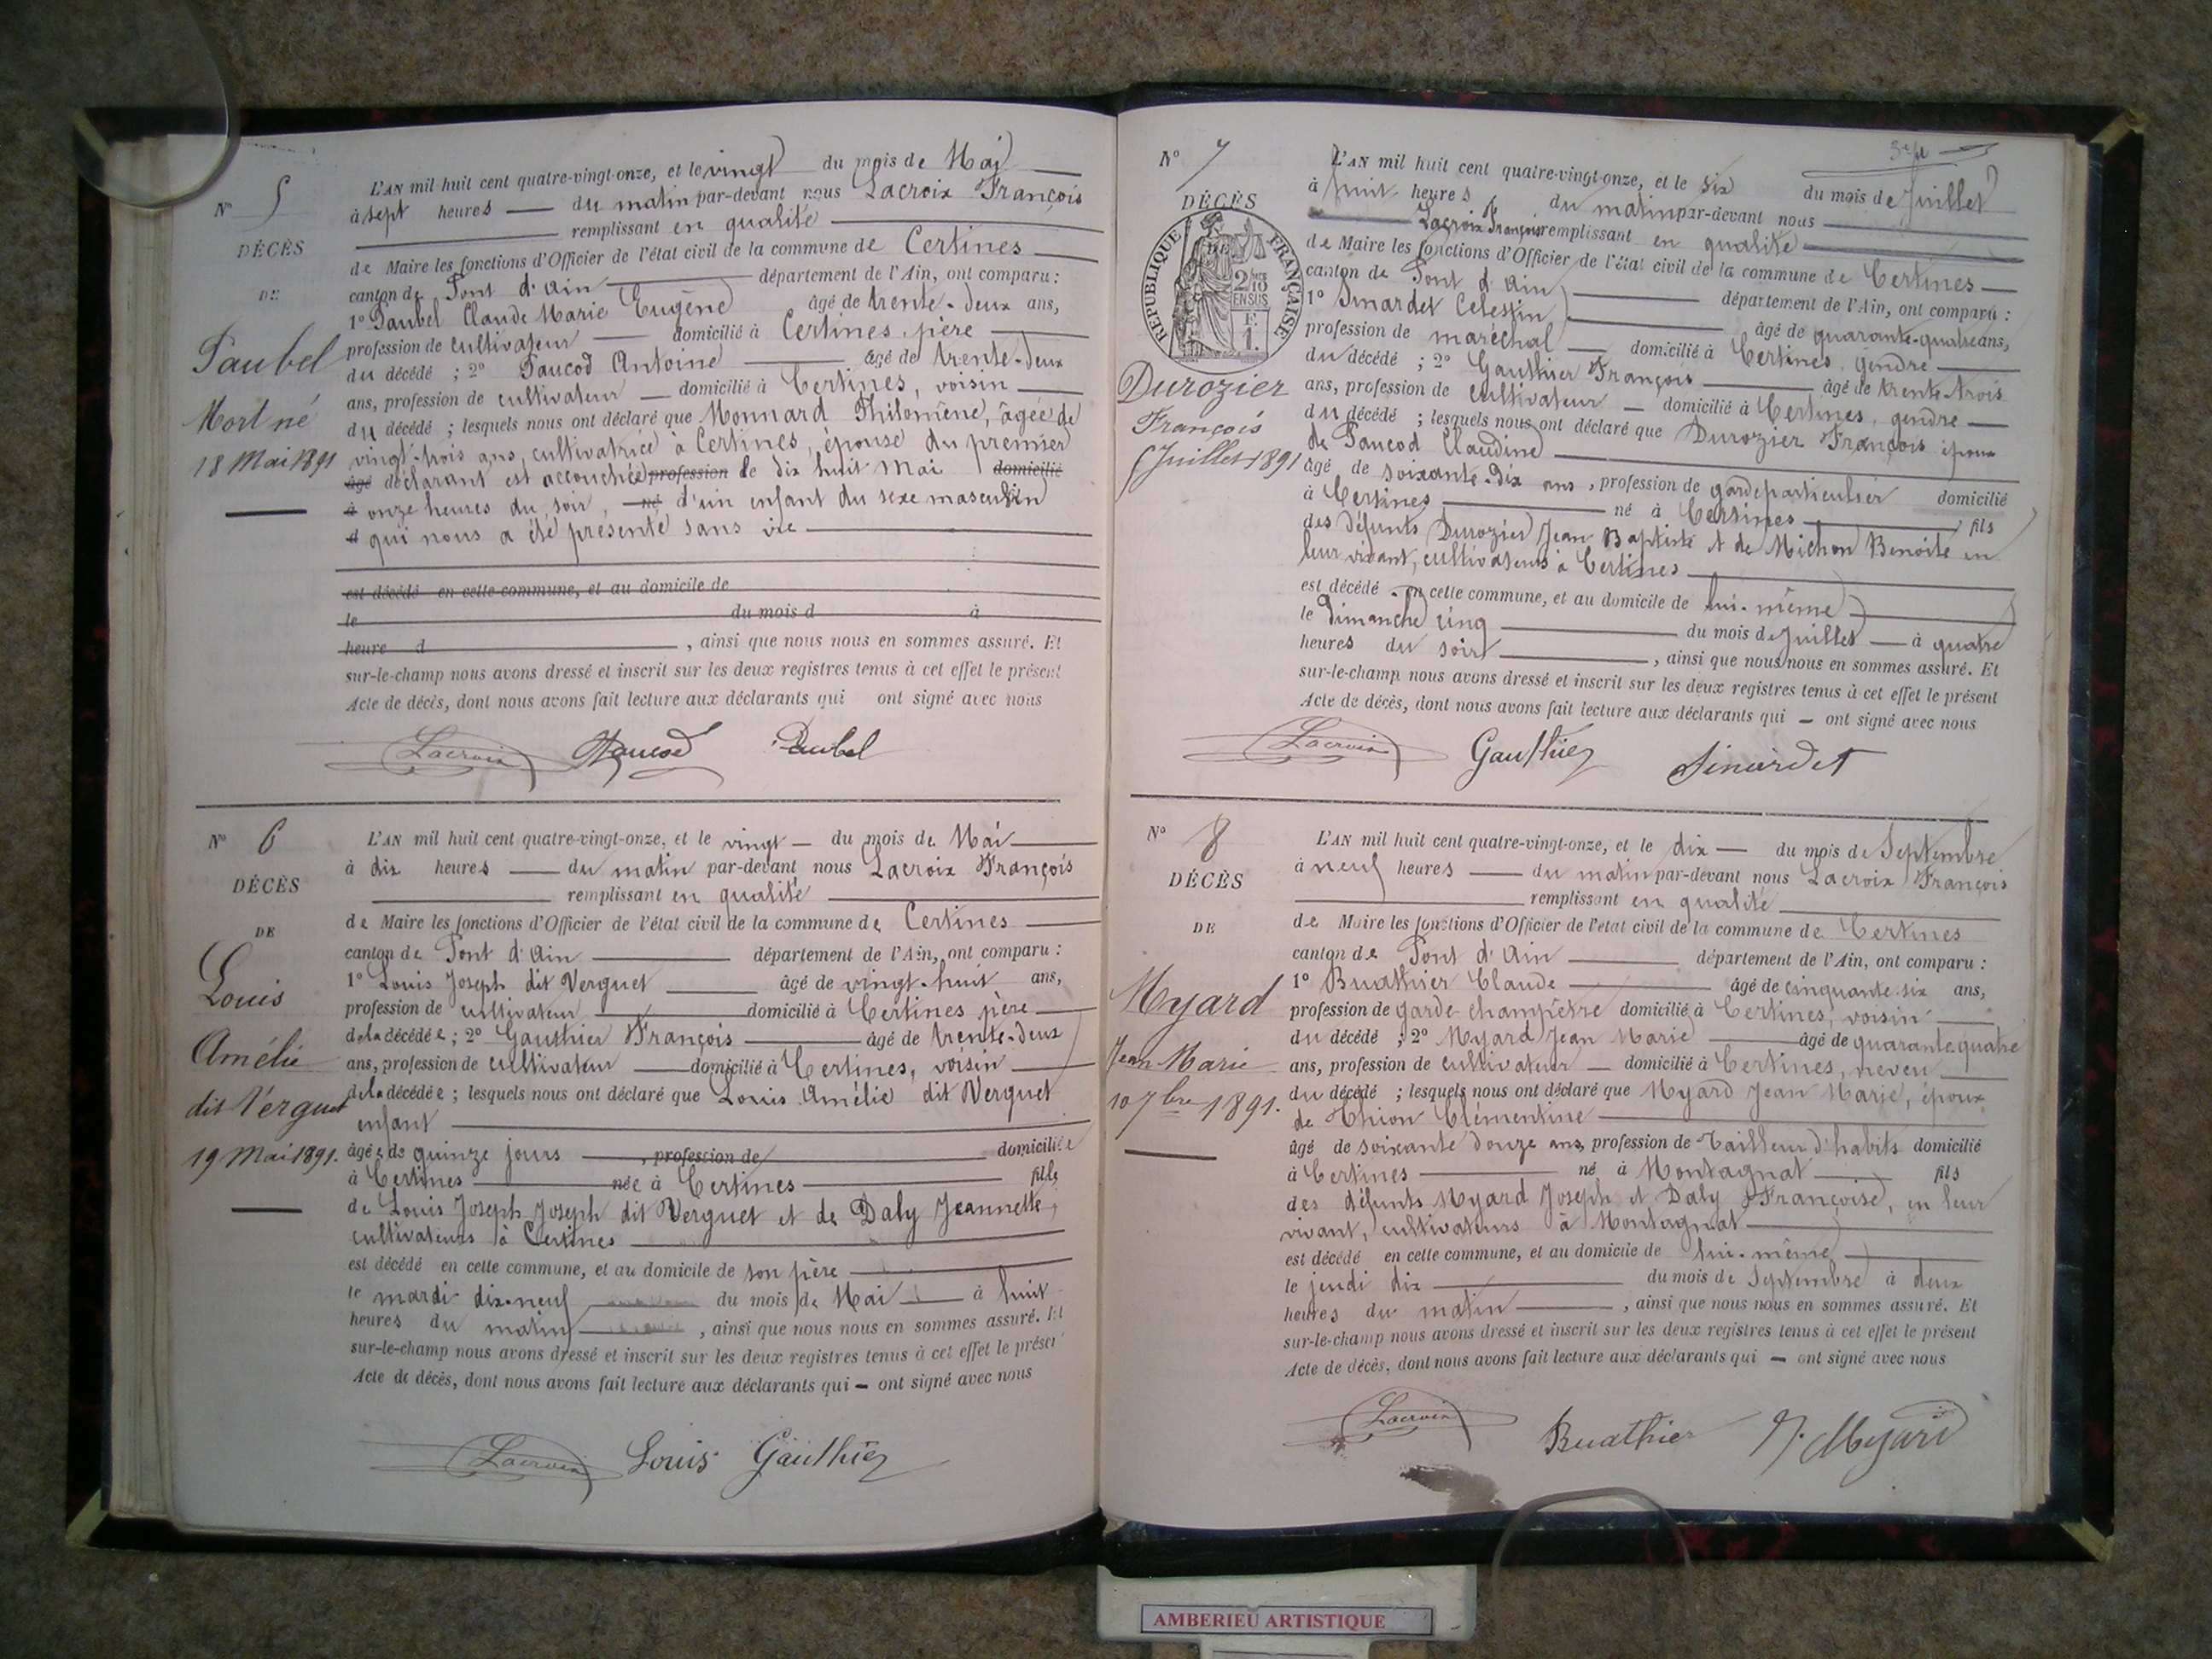 N° 5
DÉCÈS
DE
Paubel
Mort né
18 Mai 1891
L'AN mil huit cent quatre-vingt-onze, et le vingt du mois de Mai
à sept heures du matin par-devant nous Lacroix François
remplissant en qualité
de Maire les fonctions d'Officier de l'état civil de la commune de Certines
canton de Pont d'Ain département de l'Ain, ont comparu :
1° Paubel Claude Marie Eugène âgé de trente-deux ans,
profession de cultivateur domicilié à Certines, père
du décédé ; 2° Paucod Antoine âgé de trente-deux
ans, profession de cultivateur domicilié à Certines, voisin
du décédé ; lesquels nous ont déclaré que Monnard Philomène, âgée de
vingt-trois ans, cultivatrice à Certines, épouse du premier
âgé déclarant est accouchée profession le dix huit Mai domicilié
à onze heures du soir, né d'un enfant du sexe masculin
d qui nous a été présenté sans vie
est décédé en cette commune, et au domicile de
le du mois d à
heure d , ainsi que nous nous en sommes assuré. Et
sur-le-champ nous avons dressé et inscrit sur les deux registres tenus à cet effet le présent
Acte de décès, dont nous avons fait lecture aux déclarants qui ont signé avec nous
Lacroix Paucod Paubel
N° 6
DÉCÈS
DE
Louis
Amélie
dit Verguet
19 Mai 1891.
L'AN mil huit cent quatre-vingt-onze, et le vingt du mois de Mai
à dix heures du matin par-devant nous Lacroix François
remplissant en qualité
de Maire les fonctions d'Officier de l'état civil de la commune de Certines
canton de Pont d'Ain département de l'Ain, ont comparu :
1° Louis Joseph dit Verguet âgé de vingt-huit ans,
profession de cultivateur domicilié à Certines père
de la décédée ; 2° Gauthier François âgé de trente-deux
ans, profession de cultivateur domicilié à Certines, voisin
de la décédée ; lesquels nous ont déclaré que Louis Amélie dit Verguet
enfant
âgée de quinze jours , profession de domiciliée
à Certines née à Certines fille
de Louis Joseph Joseph dit Verguet et de Daly Jeannette,
cultivateurs à Certines
est décédé en cette commune, et au domicile de son père
le mardi dix-neuf du mois de Mai à huit
heures du matin , ainsi que nous nous en sommes assuré. Et
sur-le-champ nous avons dressé et inscrit sur les deux registres tenus à cet effet le présent
Acte de décès, dont nous avons fait lecture aux déclarants qui – ont signé avec nous
Lacroix Louis Gauthier
N° 7
DÉCÈS
DE
RÉPUBLIQUE FRANÇAISE
Durozier
François
5 Juillet 1891
L'AN mil huit cent quatre-vingt-onze, et le six du mois de Juillet
à huit heures du matin par-devant nous
Lacroix François remplissant en qualité
de Maire les fonctions d'Officier de l'état civil de la commune de Certines
canton de Pont d'Ain département de l'Ain, ont comparu :
1° Sinardet Celestin âgé de quarante-quatre ans,
profession de maréchal domicilié à Certines, gendre
du décédé ; 2° Gauthier François âgé de trente-trois
ans, profession de cultivateur domicilié à Certines, gendre
du décédé ; lesquels nous ont déclaré que Durozier François époux
de Paucod Claudine
âgé de soixante-dix ans, profession de garde particulier domicilié
à Certines né à Certines fils
des défunts Durozier Jean Baptiste et de Michon Benoite en
leur vivant, cultivateurs à Certines
est décédé en cette commune, et au domicile de lui-même
le Dimanche cinq du mois de Juillet à quatre
heures du soir , ainsi que nous nous en sommes assuré. Et
sur-le-champ nous avons dressé et inscrit sur les deux registres tenus à cet effet le présent
Acte de décès, dont nous avons fait lecture aux déclarants qui – ont signé avec nous
Lacroix Gauthier Sinardet
N° 8
DÉCÈS
DE
Myard
Jean Marie
10 7bre 1891.
L'AN mil huit cent quatre-vingt-onze, et le dix du mois de Septembre
à neuf heures du matin par-devant nous Lacroix François
remplissant en qualité
de Maire les fonctions d'Officier de l'état civil de la commune de Certines
canton de Pont d'Ain département de l'Ain, ont comparu :
1° Buathier Claude âgé de cinquante-six ans,
profession de garde-champêtre domicilié à Certines, voisin
du décédé ; 2° Myard Jean Marie âgé de quarante quatre
ans, profession de cultivateur domicilié à Certines, neveu
du décédé ; lesquels nous ont déclaré que Myard Jean Marie, époux
de Chion Clémentine
âgé de soixante douze ans, profession de Tailleur d'habits domicilié
à Certines né à Montagnat fils
des défunts Myard Joseph et Daly Françoise, en leur
vivant, cultivateurs à Montagnat
est décédé en cette commune, et au domicile de lui-même
le jeudi dix du mois de Septembre à deux
heures du matin , ainsi que nous nous en sommes assuré. Et
sur-le-champ nous avons dressé et inscrit sur les deux registres tenus à cet effet le présent
Acte de décès, dont nous avons fait lecture aux déclarants qui – ont signé avec nous
Lacroix Buathier J. Myard
AMBERIEU ARTISTIQUE